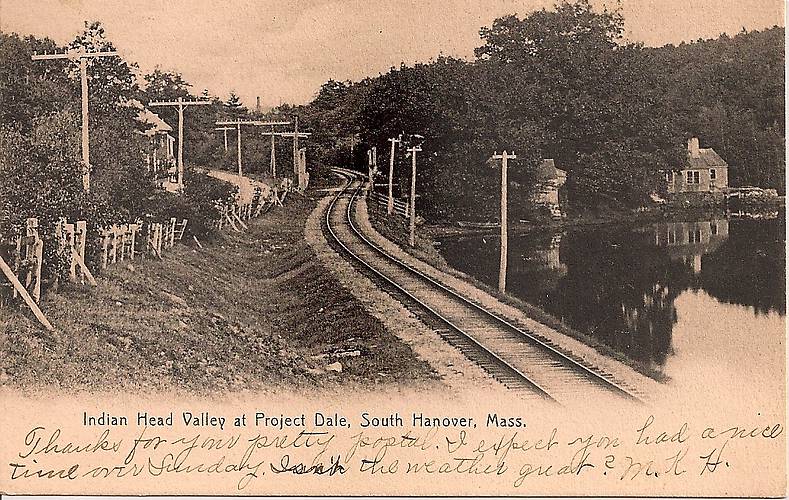 Indian Head Valley at Project Dale, South Hanover, Mass.
Thanks for your pretty postal. I expect you had a nice
time over Sunday. Isn't the weather great? M. K. H.